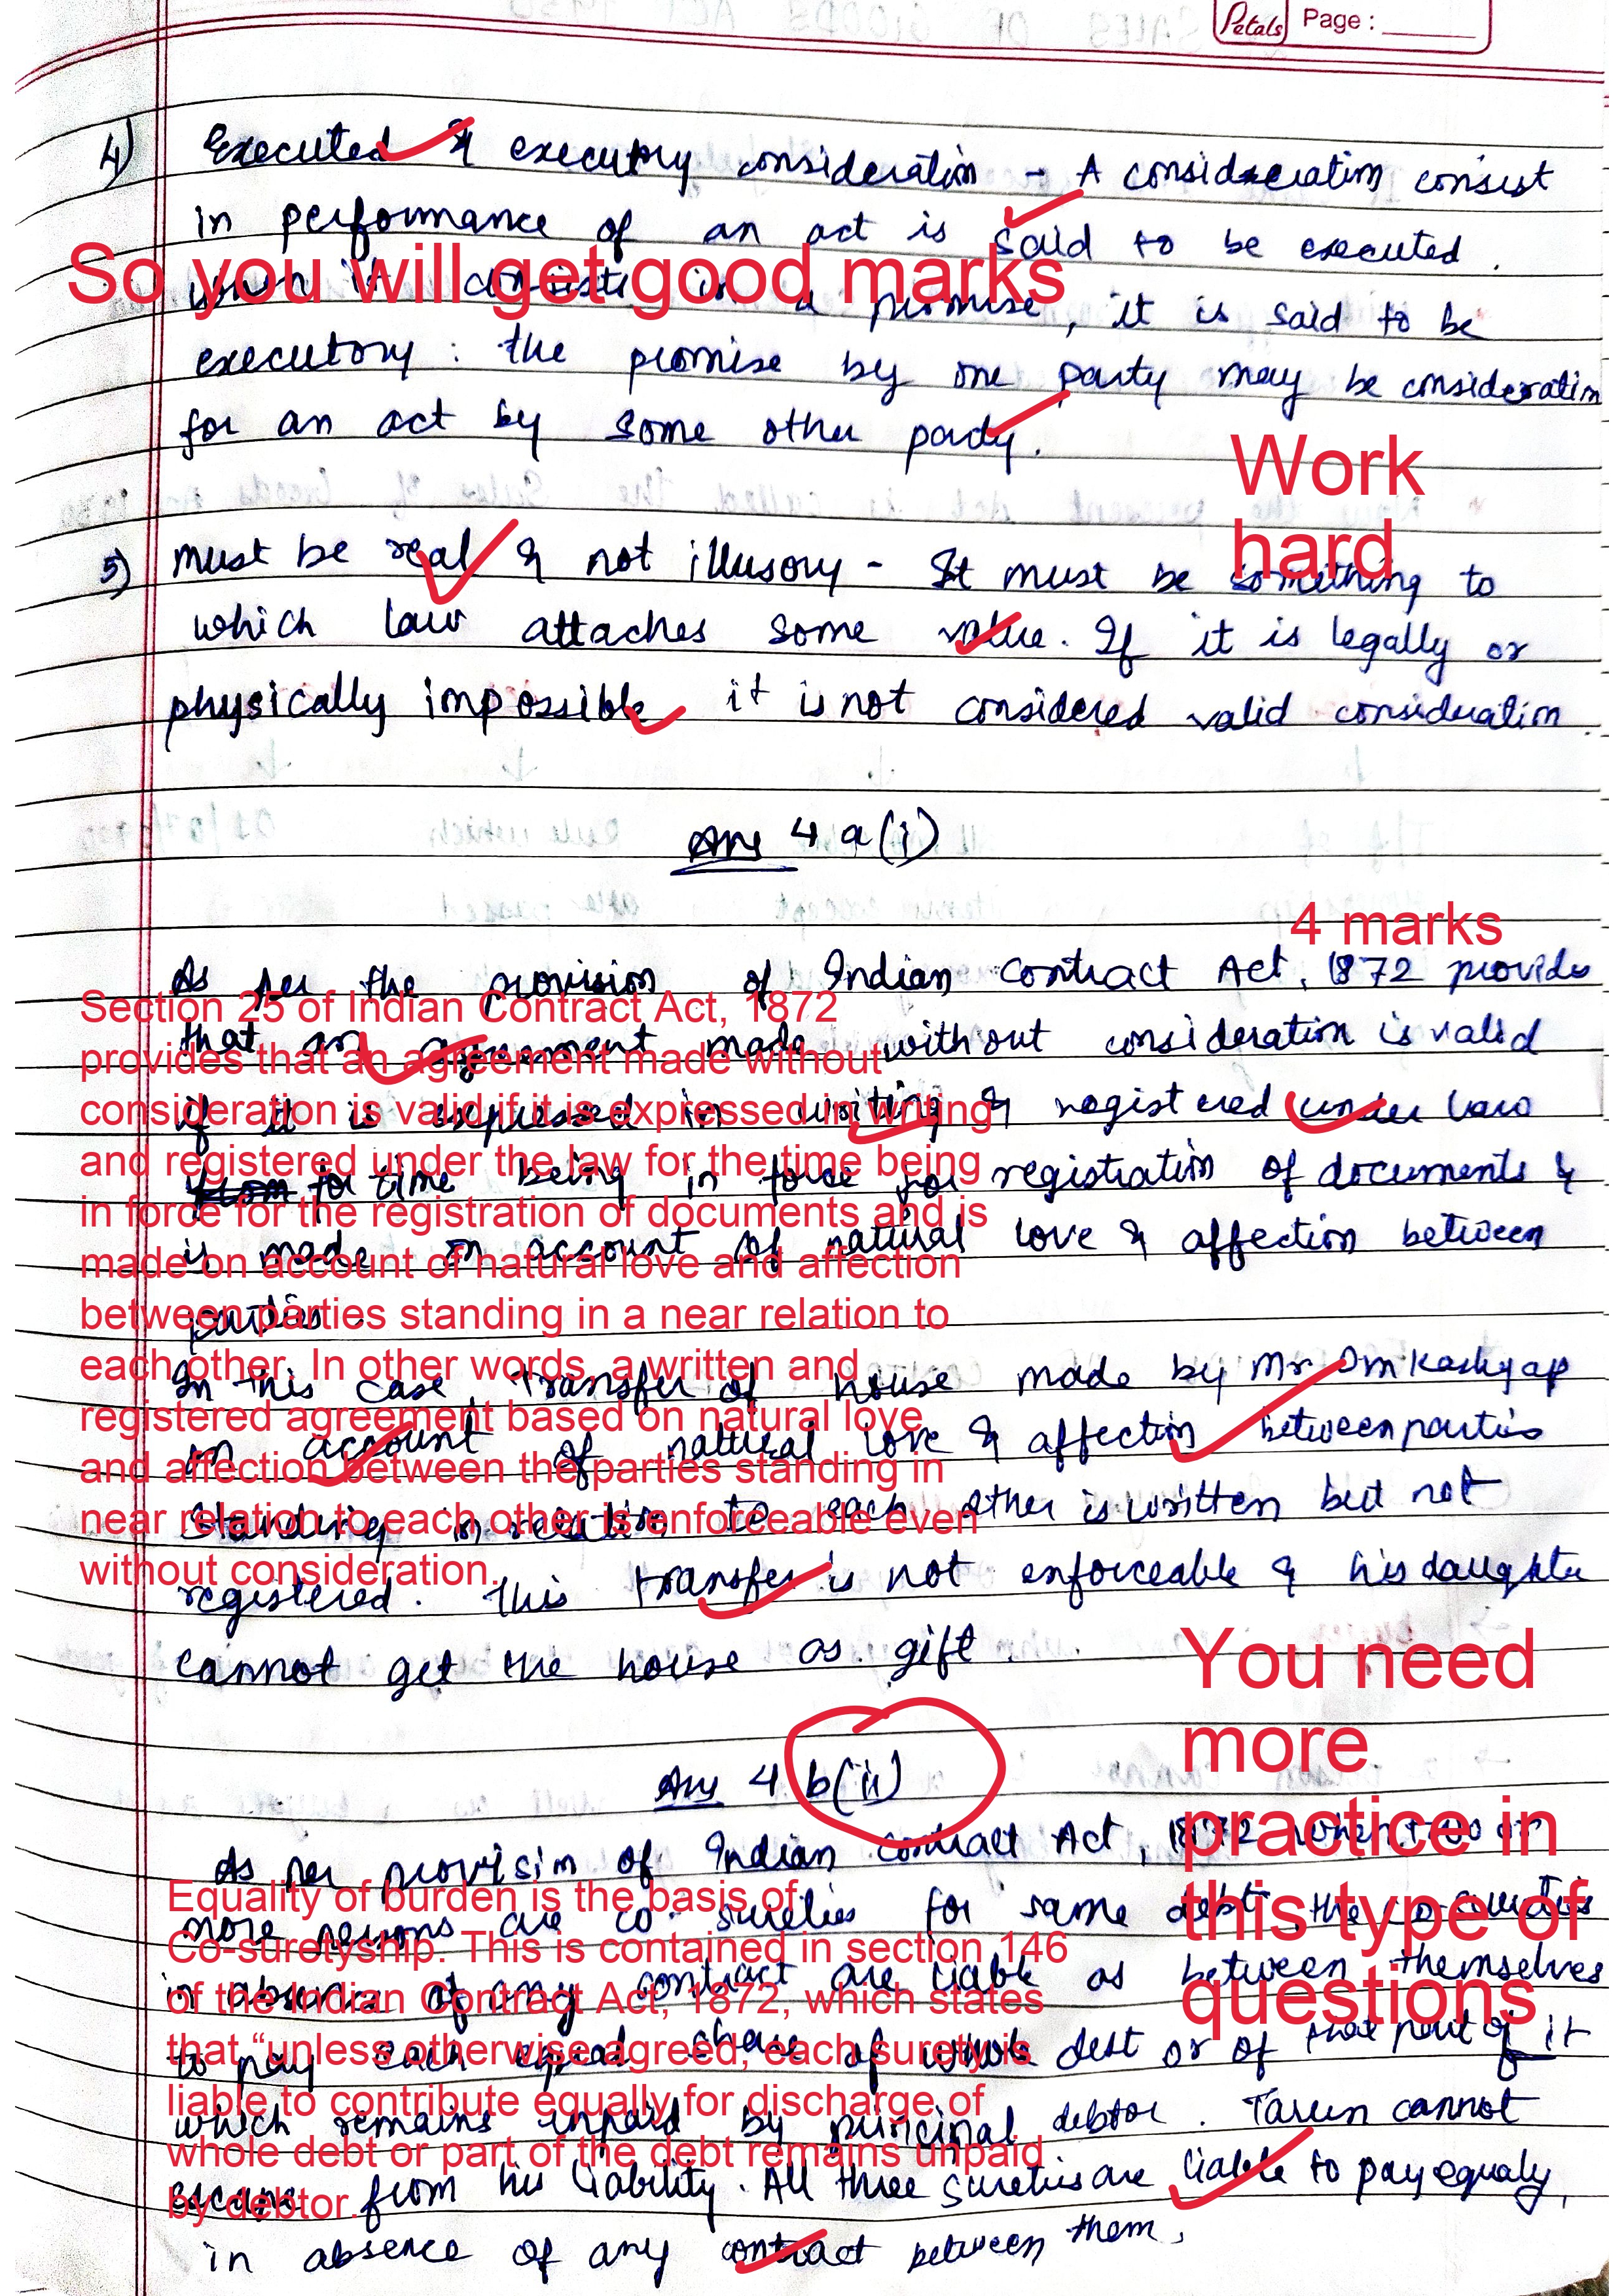 Petals Page :
4) Executed & executory consideration - A consideration consist
in performance of an act is said to be executed.
So you will get good marks
when it consists in a promise, it is said to be
executory : the promise by one party may be consideration
for an act by some other party.
Work
hard
5) must be real & not illusory - It must be something to
which law attaches some value. If it is legally or
physically impossible it is not considered valid consideration.
Ans 4 a(i)
4 marks
As per the provision of Indian Contract Act, 1872 provide
that an agreement made without consideration is valid
if it is expressed in writing & registered under law
for time being in force for registration of documents &
is made on account of natural love & affection between
parties.
Section 25 of Indian Contract Act, 1872
provides that an agreement made without
consideration is valid if it is expressed in writing
and registered under the law for the time being
in force for the registration of documents and is
made on account of natural love and affection
between parties standing in a near relation to
each other. In other words, a written and
registered agreement based on natural love
and affection between the parties standing in
near relation to each other is enforceable even
without consideration.
In this case, transfer of house made by Mr Om Kashyap
on account of natural love & affection between parties
standing in relation to each other is written but not
registered. This transfer is not enforceable & his daughter
cannot get the house as gift.
You need
more
practice in
this type of
questions
Ans 4 b(ii)
As per provision of Indian contract Act, 1872 when two or
more persons are co-sureties for same debt, the co-sureties
in absence of any contract are liable as between themselves
to pay each equal share of whole debt or of that part of it
which remains unpaid by principal debtor. Tarun cannot
escape from his liability. All three sureties are liable to pay equaly,
in absence of any contract between them.
Equality of burden is the basis of
Co-suretyship. This is contained in section 146
of the Indian Contract Act, 1872, which states
that “unless otherwise agreed, each surety is
liable to contribute equally for discharge of
whole debt or part of the debt remains unpaid
by debtor.